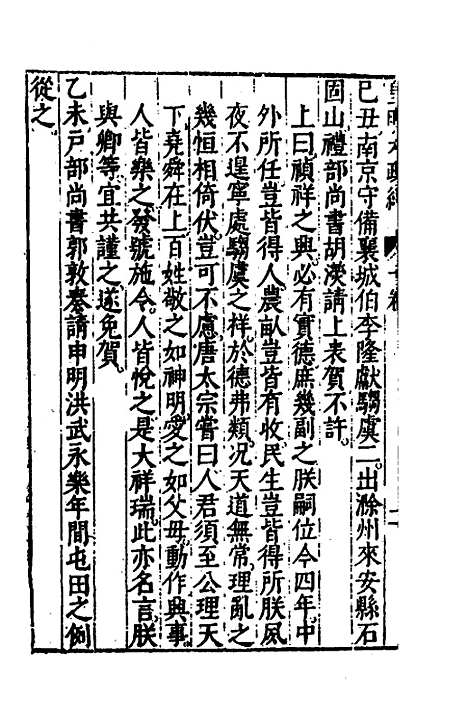 皇明大政紀
己丑南京守備襄城伯李隆獻騶虞二出滁州來安縣石
固山禮部尚書胡濙請上表賀不許
上曰禎祥之興必有實德庶幾副之朕嗣位今四年中
外所任豈皆得人農畝豈皆有收民生豈皆得所朕夙
夜不遑寧處騶虞之祥於德弗類況天道無常理亂之
幾恒相倚伏豈可不慮唐太宗嘗曰人君須至公理天
下堯舜在上百姓敬之如神明愛之如父母動作興事
人皆樂之發號施令人皆悅之是大祥瑞此亦名言朕
與卿等宜共謹之遂免賀
乙未戶部尚書郭敦奏請申明洪武永樂年間屯田之例
從之